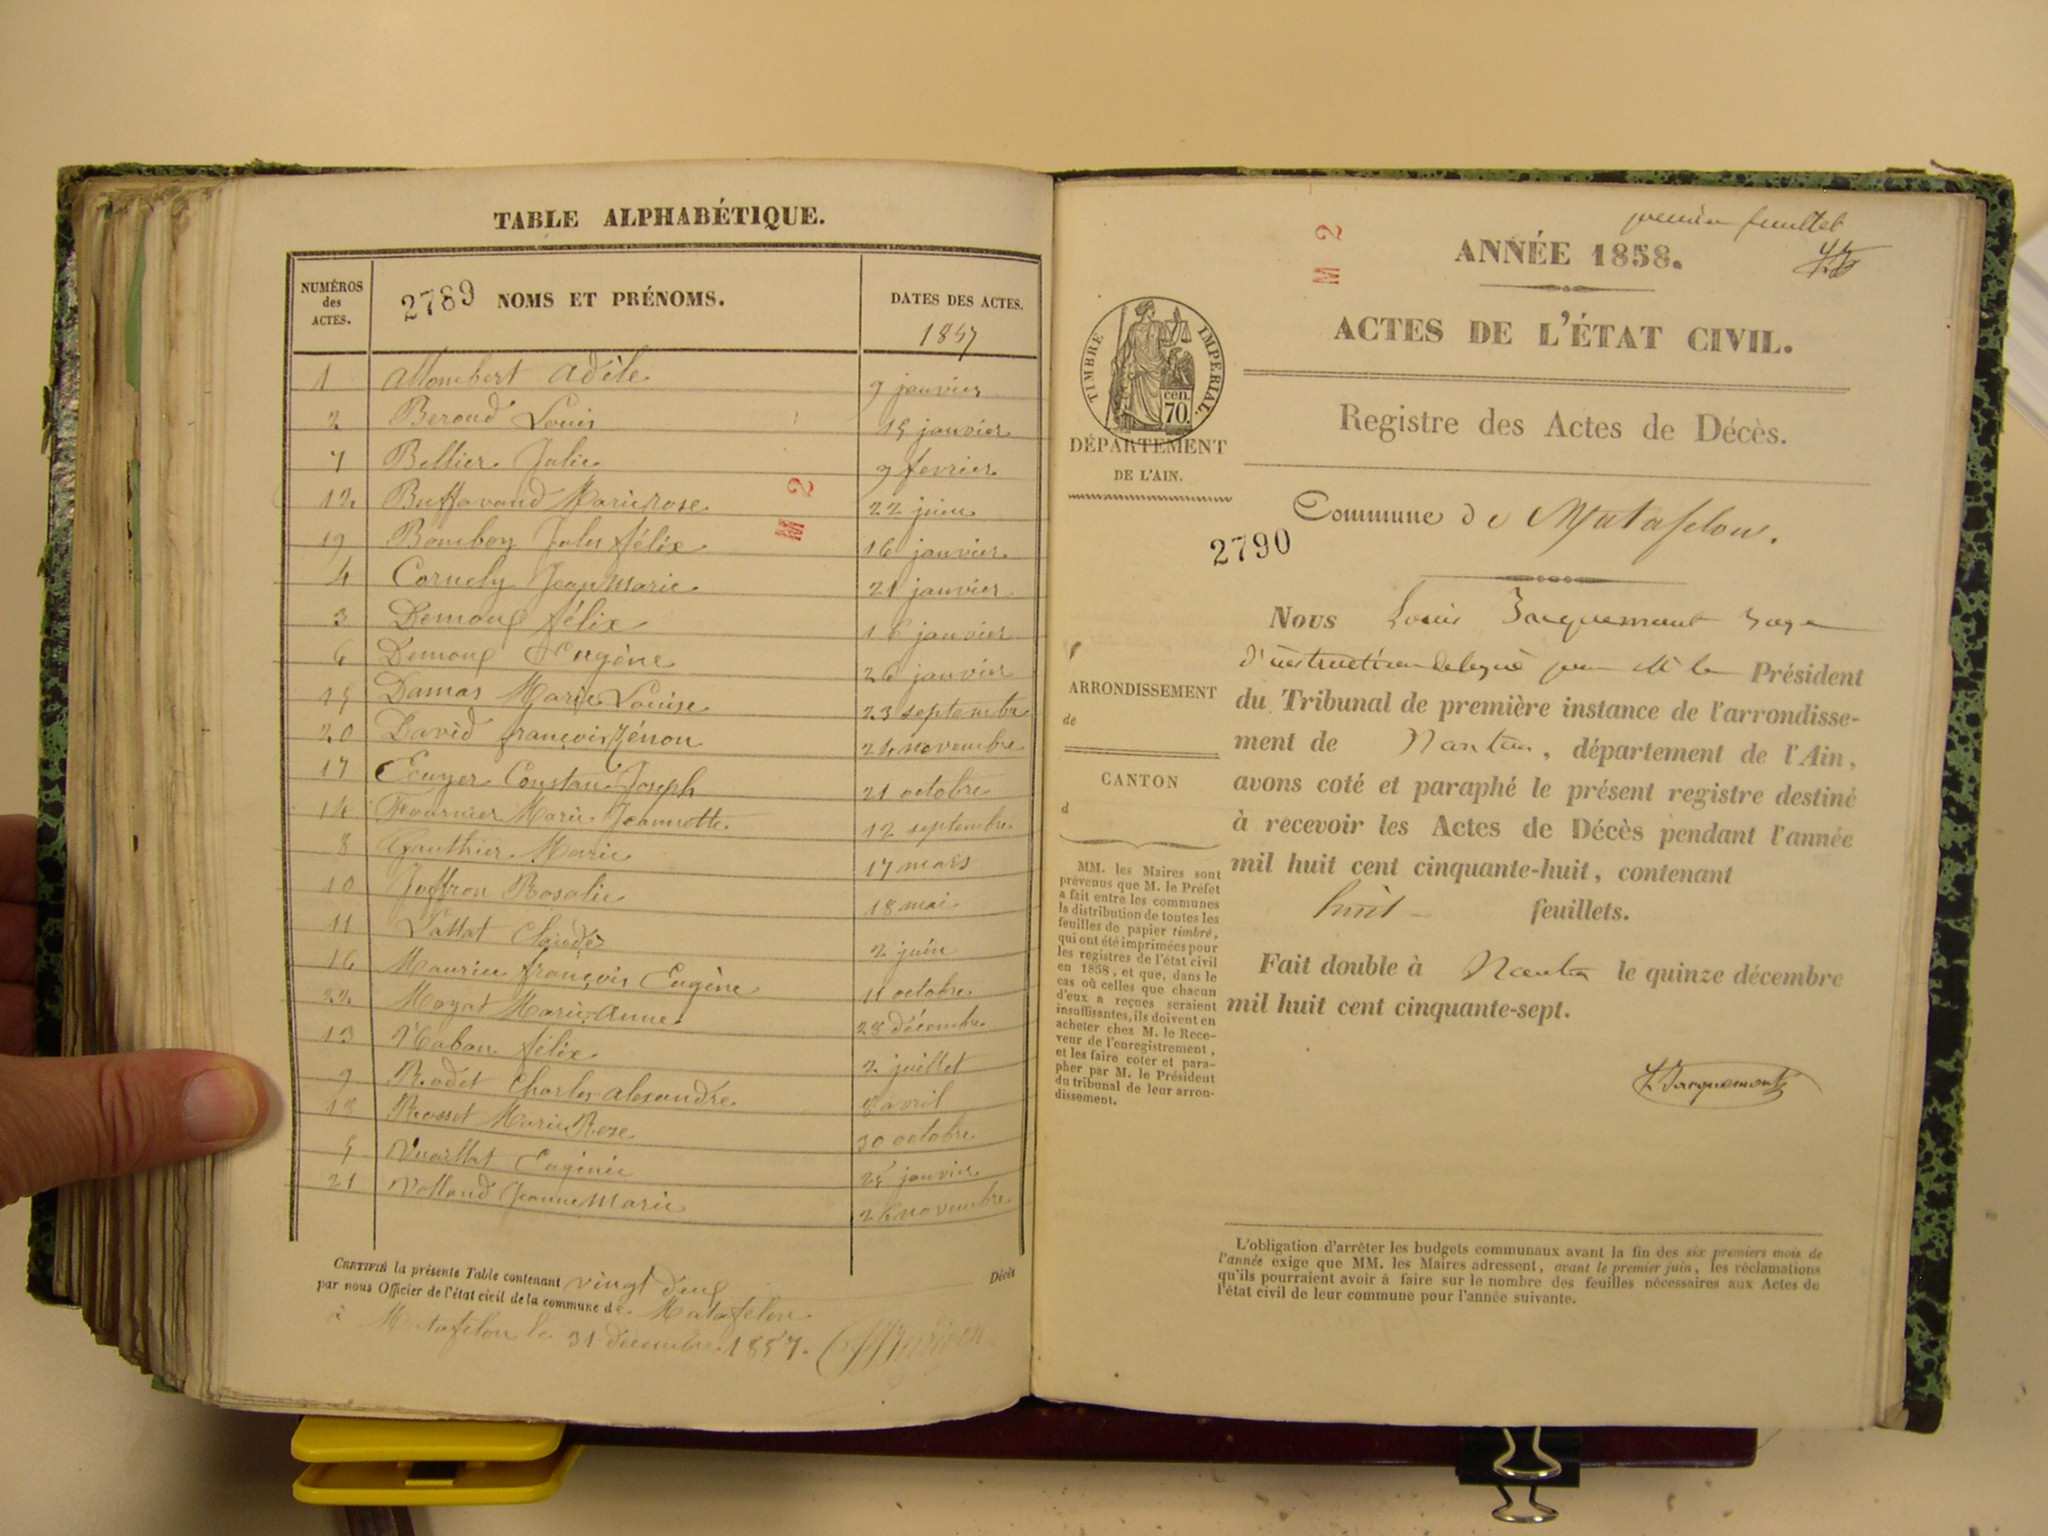 TABLE ALPHABÉTIQUE.
NUMÉROS des ACTES.
2789 NOMS ET PRÉNOMS.
DATES DES ACTES.
1857
1 Allombert Adèle 9 janvier
2 Beroud Louis 15 janvier
7 Bellier Julie 9 fevrier
12 Buffavand Marie Rose 22 juin
19 Bomboy Jules félix 16 janvier
4 Cornely Jean Marie 21 janvier
3 Demoux félix 16 janvier
6 Demoux Eugène 26 janvier
15 Damas Marie Louise 23 septembre
20 David françois Zénon 24 novembre
17 Ecuyer Constant Joseph 21 octobre
14 Fournier Marie Jeannette 12 septembre
8 Gauthier Marie 17 mars
10 Joffron Rosalie 18 mai
11 Lallat Claude 2 juin
16 Maurier françois Eugène 11 octobre
22 Moyat Marie Anne 28 décembre
13 Naban félix 2 juillet
9 Rodet Charles alexandre 8 avril
18 Rosset Marie Rose 30 octobre
5 Vuarllat Eugénie 25 janvier
21 Volland Jeanne Marie 26 novembre
M 2
CERTIFIÉ la présente Table contenant vingt deux Décès
par nous Officier de l'état civil de la commune de Matafelon
à Matafelon le 31 décembre 1857.
premier feuillet
M 2
ANNÉE 1858.
ACTES DE L'ÉTAT CIVIL.
TIMBRE IMPERIAL.
cen. 70.
DÉPARTEMENT
DE L'AIN.
Registre des Actes de Décès.
Commune de Matafelon.
2790
Nous Louis Jacquemont Juge
d'instruction délégué par M. le Président
du Tribunal de première instance de l'arrondisse-
ment de Nantua, département de l'Ain,
avons coté et paraphé le présent registre destiné
à recevoir les Actes de Décès pendant l'année
mil huit cent cinquante-huit, contenant
huit feuillets.
Fait double à Nantua le quinze décembre
mil huit cent cinquante-sept.
L. Jacquemont
ARRONDISSEMENT
de
CANTON
d
MM. les Maires sont
prévenus que M. le Préfet
a fait entre les communes
la distribution de toutes les
feuilles de papier timbré,
qui ont été imprimées pour
les registres de l'état civil
en 1858, et que, dans le
cas où celles que chacun
d'eux a reçues seraient
insuffisantes, ils doivent en
acheter chez M. le Rece-
veur de l'enregistrement,
et les faire coter et para-
pher par M. le Président
du tribunal de leur arron-
dissement.
L'obligation d'arrêter les budgets communaux avant la fin des six premiers mois de
l'année exige que MM. les Maires adressent, avant le premier juin, les réclamations
qu'ils pourraient avoir à faire sur le nombre des feuilles nécessaires aux Actes de
l'état civil de leur commune pour l'année suivante.